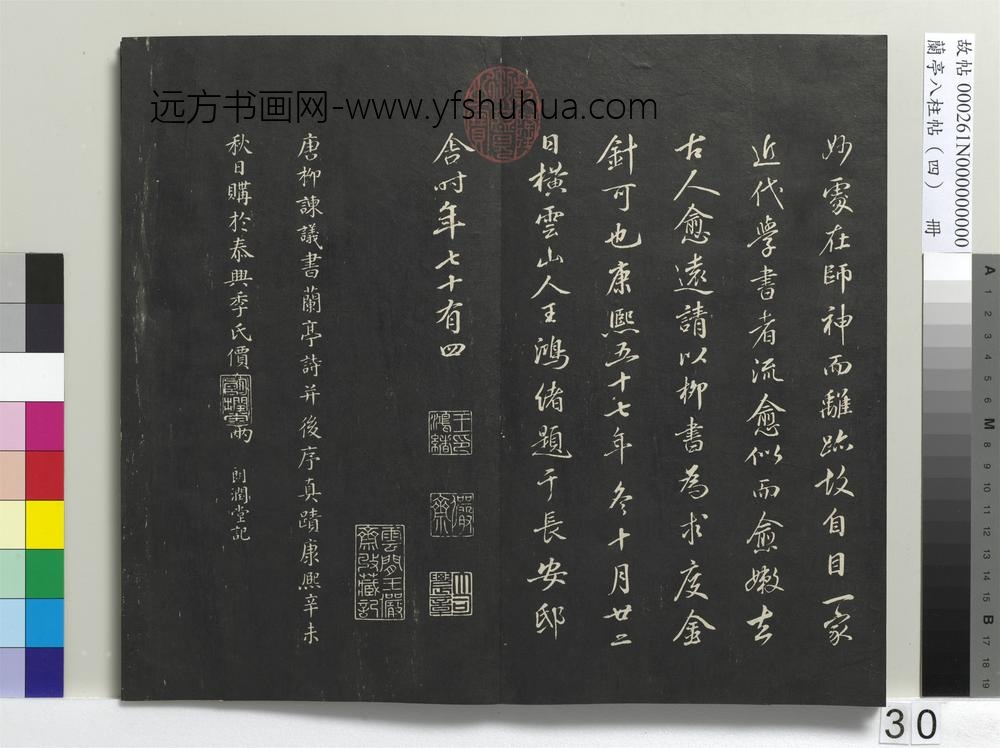 远方书画网-www.yfshuhua.com
故帖 000261N000000000000
蘭亭八柱帖（四） 冊
妙處在師神而離跡故自目一家
近代學書者流愈似而愈嫩去
古人愈遠請以柳書為求度金
針可也康熙五十七年冬十月廿二
日橫雲山人王鴻緒題于長安邸
舍时年七十有四
王鴻緒印
儼齋
雲間王儼齋收藏記
唐柳諫議書蘭亭詩并後序真蹟康熙辛未
秋日購於泰興季氏價
兩
朗潤堂記
A 1 2 3 4 5 6 M 8 9 10 11 12 13 14 15 B 17 18 19
30